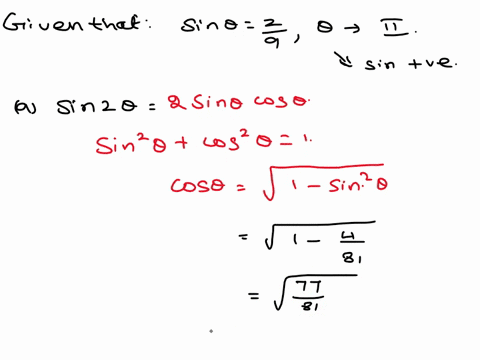 Given that: sinθ = 2/9, θ → II.
↘ sin +ve.
a) sin2θ = 2 sinθ cosθ.
sin²θ + cos²θ = 1.
cosθ = √(1 - sin²θ)
= √(1 - 4/81)
= √(77/81)